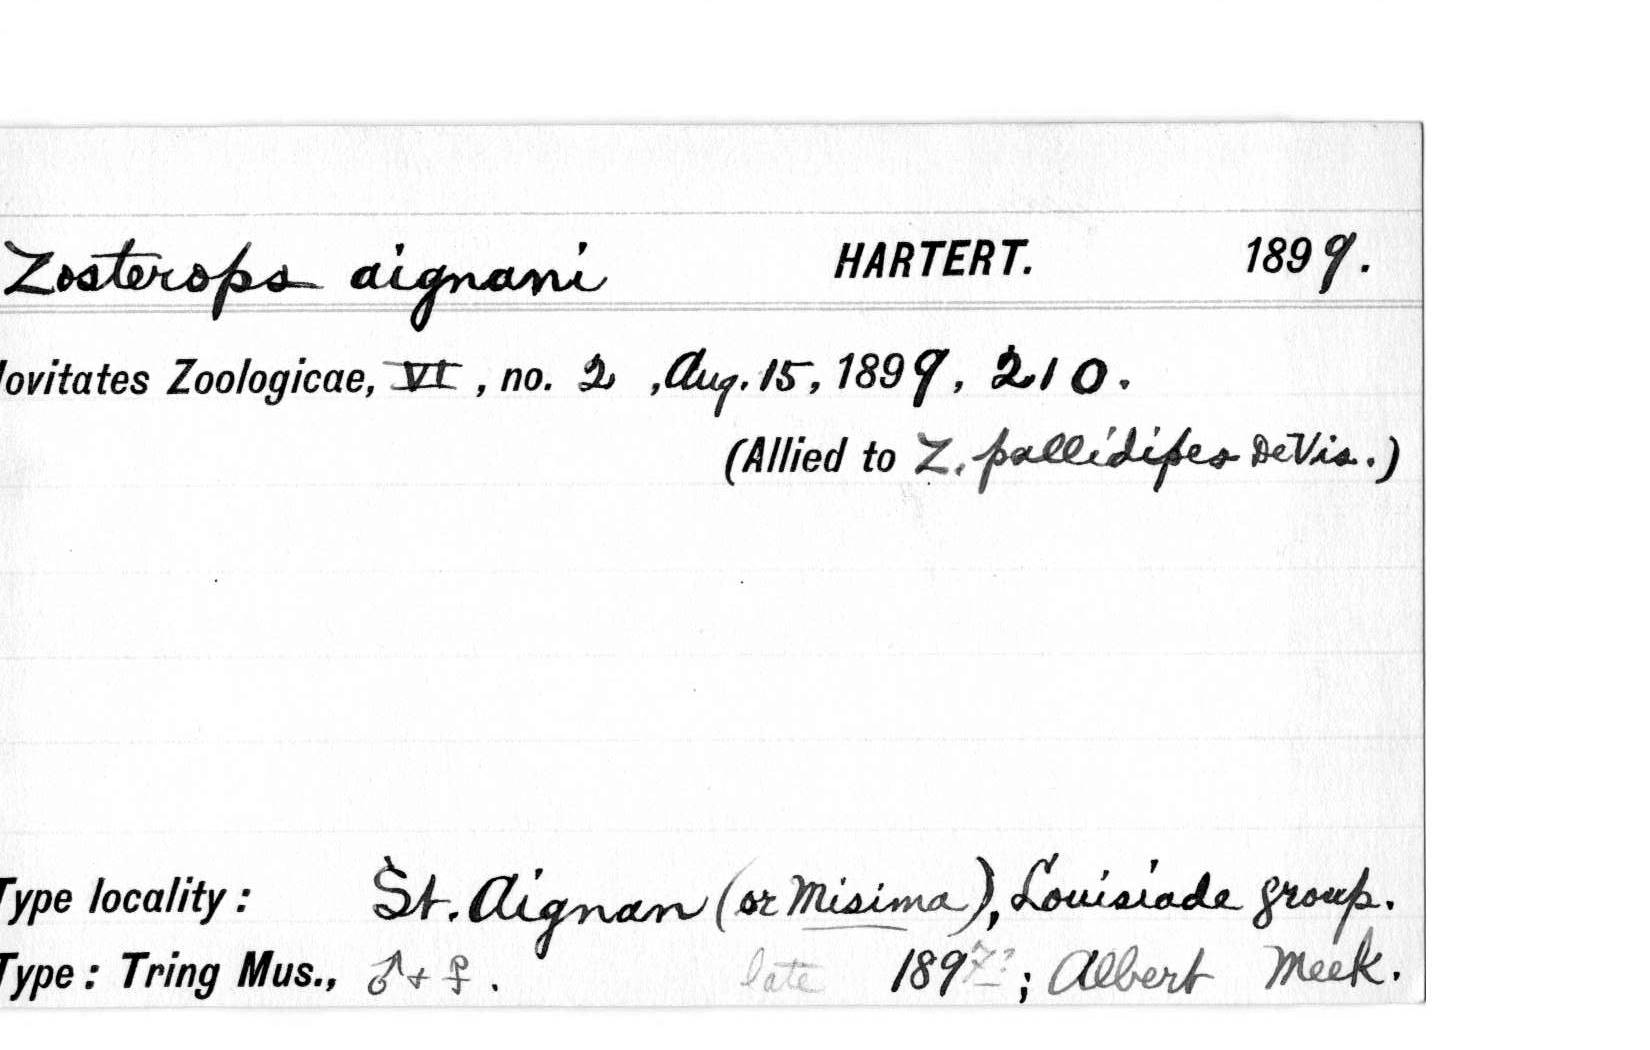 Zosterops aignani HARTERT. 1899.
ovitates Zoologicae, VI, no. 2, Aug. 15, 1899, 210.
(Allied to Z. pallidipes DeVis.)
Type locality: St. Aignan (or Misima), Louisiade group.
Type: Tring Mus., ♂ + ♀. late 1897?; Albert Meek.